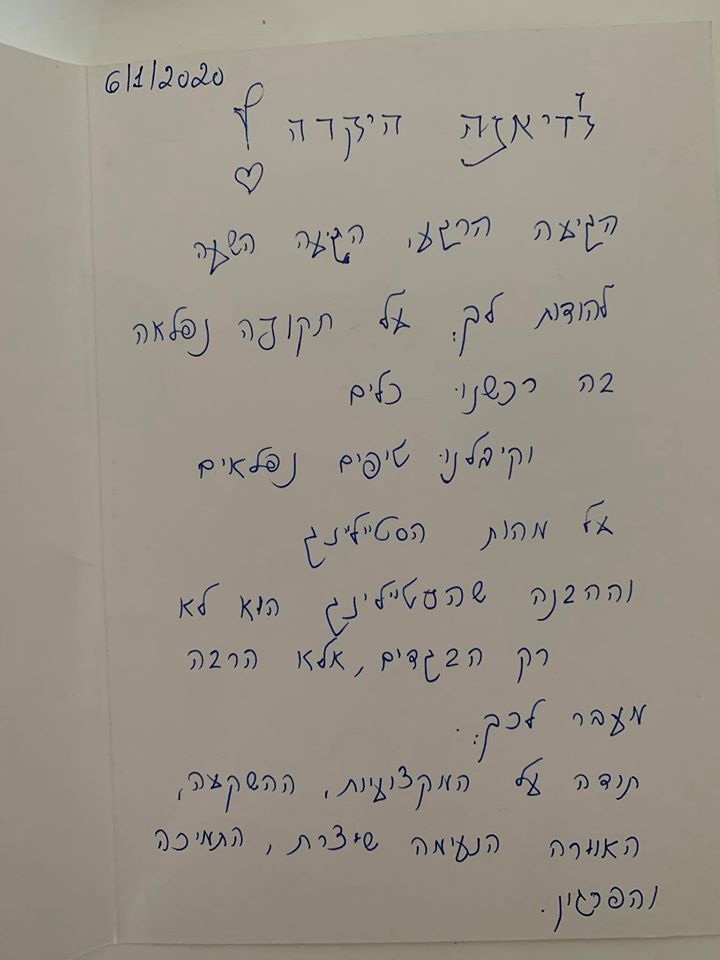 6/1/2020
לדיאנה היקרה
הגיעה הרגע, הגיעה השעה
להודות לך. על תקופה נפלאה
בה רכשנו כלים
וקיבלנו טיפים נפלאים
על מהות הסטיילינג
וההבנה שהסטיילינג הוא לא
רק הבגדים, אלא הרבה
מעבר לכך.
תודה על המקצועיות, ההשקעה,
האווירה הנעימה שיצרת, התמיכה
והפרגון.